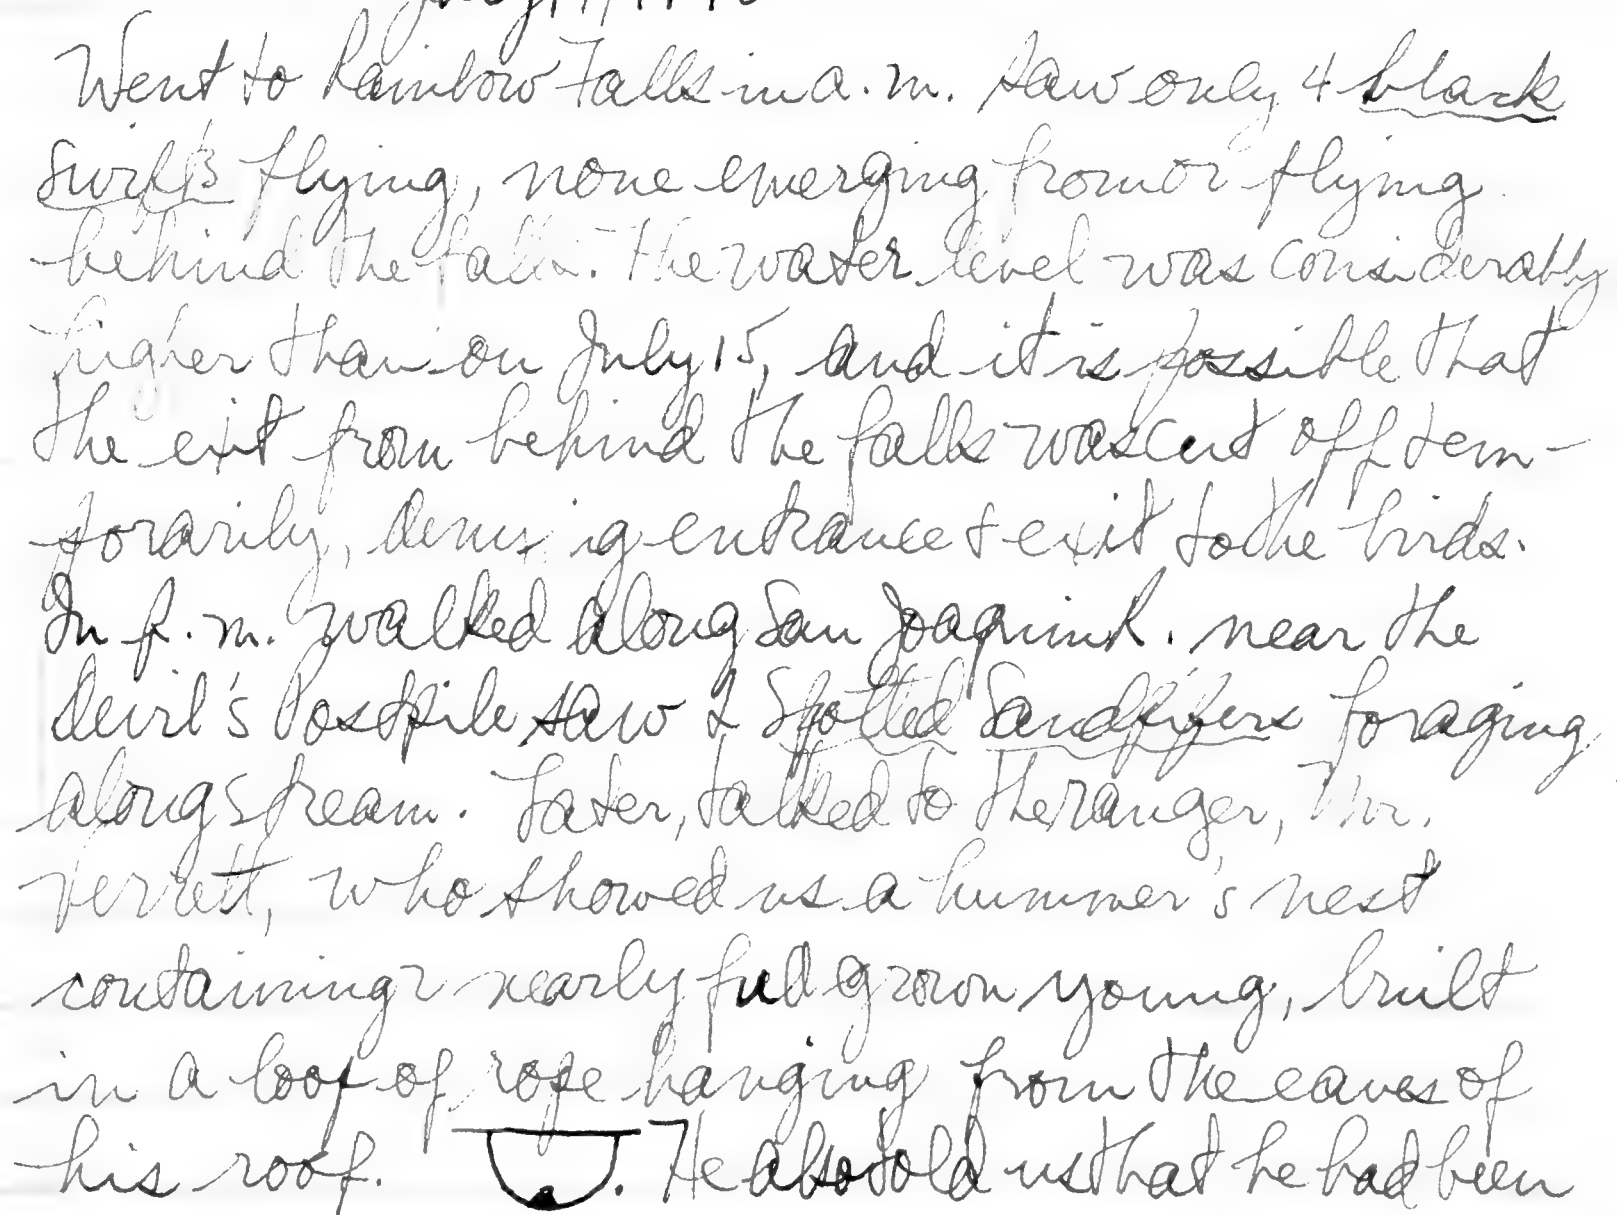 Went to Rainbow Falls in a.m. Saw only 4 black
swifts flying, none emerging from or flying
behind the falls. The water level was considerably
higher than on July 15, and it is possible that
the exit from behind the falls was cut off tem-
porarily, denying entrance & exit to the birds.
In p.m. walked along San Joaquin R. near the
Devil's Postpile saw 2 Spotted Sandpipers foraging
along stream. Later, talked to the ranger, Mr.
Verrett, who showed us a hummer's nest
containing 2 nearly full grown young, built
in a loop of rope hanging from the eaves of
his roof. He also told us that he had been